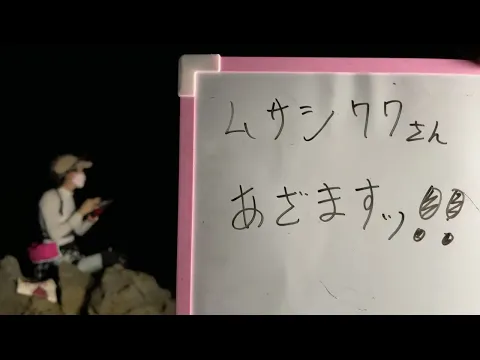 ムサシ77さん
あざますッ!!